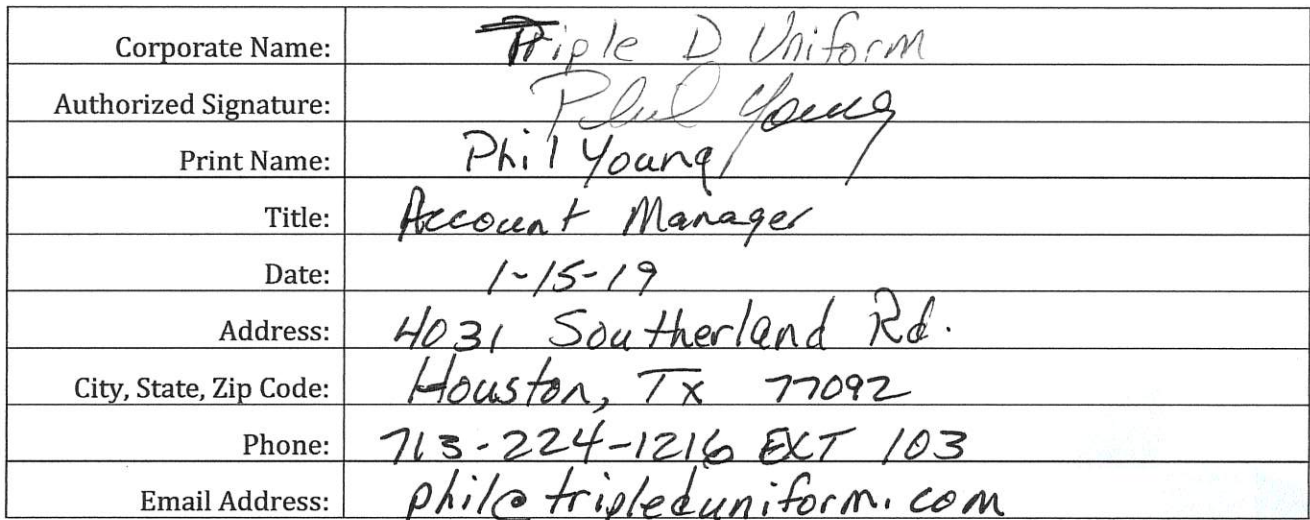 Corporate Name: Triple D Uniform
Authorized Signature: Phil Young
Print Name: Phil Young
Title: Account Manager
Date: 1-15-19
Address: 4031 Southerland Rd.
City, State, Zip Code: Houston, Tx 77092
Phone: 713-224-1216 EXT 103
Email Address: phil@tripleduniform.com